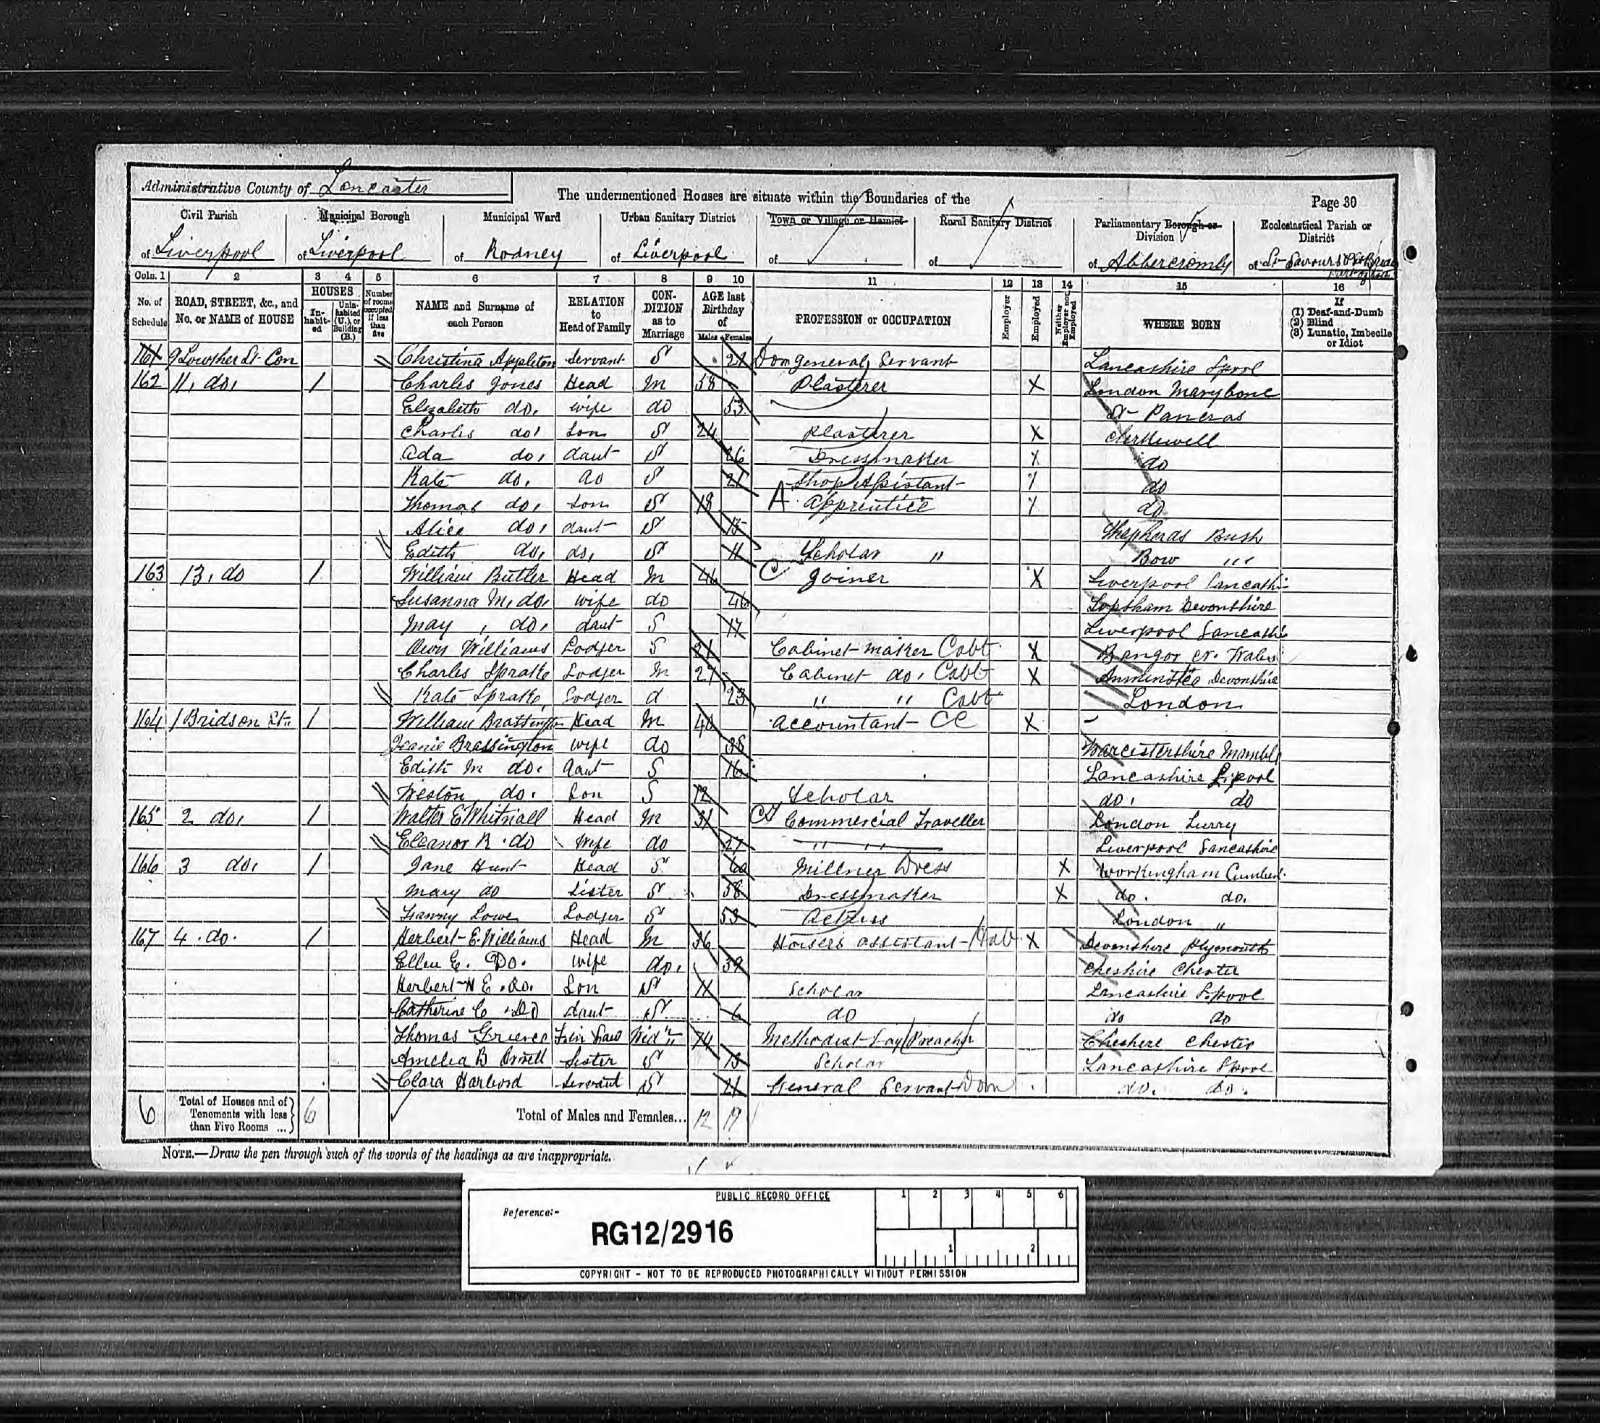 Administrative County of Lancaster
The undermentioned Houses are situate within the Boundaries of the
Page 30
Civil Parish
Municipal Borough
Municipal Ward
Urban Sanitary District
Town or Village or Hamlet
Rural Sanitary District
Parliamentary Borough or Division
Ecclesiastical Parish or District
of Liverpool
of Liverpool
of Rodney
of Liverpool
of
of
of Abbercromby
of St Saviours
Colm. 1 2 3 4 5 6 7 8 9 10 11 12 13 14 15 16
No. of Schedule
ROAD, STREET, &c., and No. or NAME of HOUSE
HOUSES
Inhabited
Uninhabited (U.), or Building (B.)
Number of rooms occupied if less than five
NAME and Surname of each Person
RELATION to Head of Family
CONDITION as to Marriage
AGE last Birthday of
Males Females
PROFESSION or OCCUPATION
Employer
Employed
Neither Employer nor Employed
WHERE BORN
If (1) Deaf-and-Dumb (2) Blind (3) Lunatic, Imbecile or Idiot
161 9 Lowther St Con Christina Appleton Servant S 21 Dom General Servant Lancashire Lpool
162 11, do, 1 Charles Jones Head M 58 Plasterer X London Marybone
Elizabeth do, wife do 53 St Pancras
Charles do, Son S 24 Plasterer X Clerkewell
Ada do, daut S 26 Dressmaker X do
Kate do, do S 21 Shop Assistant X do
Thomas do, Son S 18 A Apprentice X do
Alice do, daut S 15 Shepherds Bush
Edith do, do, S 11 Scholar " Bow "
163 13, do 1 William Butler Head M 46 C Joiner X Liverpool Lancashi
Susanna M, do, wife do 46 Topsham Devonshire
May , do, daut S 17 Liverpool Lancashi
Owen Williams Lodger S 21 Cabinet maker Cabt X Bangor N. Wales
Charles Spratte Lodger M 27 Cabinet do, Cabt X Devonshire
Kate Spratte, Lodger d 23 " " Cabt London
164 1 Bridson St 1 William Brassington Head M 40 Accountant CC X –
Jeanie Brassington wife do 38 Worcestershire
Edith M do. daut S 16 Lancashire Lpool
Weston do. Son S 12 Scholar do. do
165 2 do, 1 Walter E Whitnall Head M 31 Commercial Traveller London Surry
Eleanor R. do Wife do 27 " " Liverpool Lancashire
166 3 do, 1 Jane Hunt Head S 60 Millner Dress X Workingham
Mary do Sister S 58 Dressmaker X do. do.
Fanny Lowe Lodger S 53 Actress London "
167 4 .do. 1 Herbert E. Williams Head M 36 Hosiers assistant Hab X Devonshire Plymouth
Ellen E. Do. wife do, 39 Cheshire Chester
Herbert H E .do. Son S 11 Scholar Lancashire Lpool
Catherine C .DO daut S 6 do do do
Thomas Grieves Fa in Law Widr 74 Methodist Lay Preachr Cheshire Chester
Amelia B Sister S 13 Scholar Lancashire Lpool
Clara Harbord Servant S 21 General Servant Dom do. do.
6 Total of Houses and of Tenements with less than Five Rooms ... 6 Total of Males and Females... 12 19
NOTE.—Draw the pen through such of the words of the headings as are inappropriate.
PUBLIC RECORD OFFICE
1 2 3 4 5 6
Reference:-
RG12/2916
1 2
COPYRIGHT - NOT TO BE REPRODUCED PHOTOGRAPHICALLY WITHOUT PERMISSION